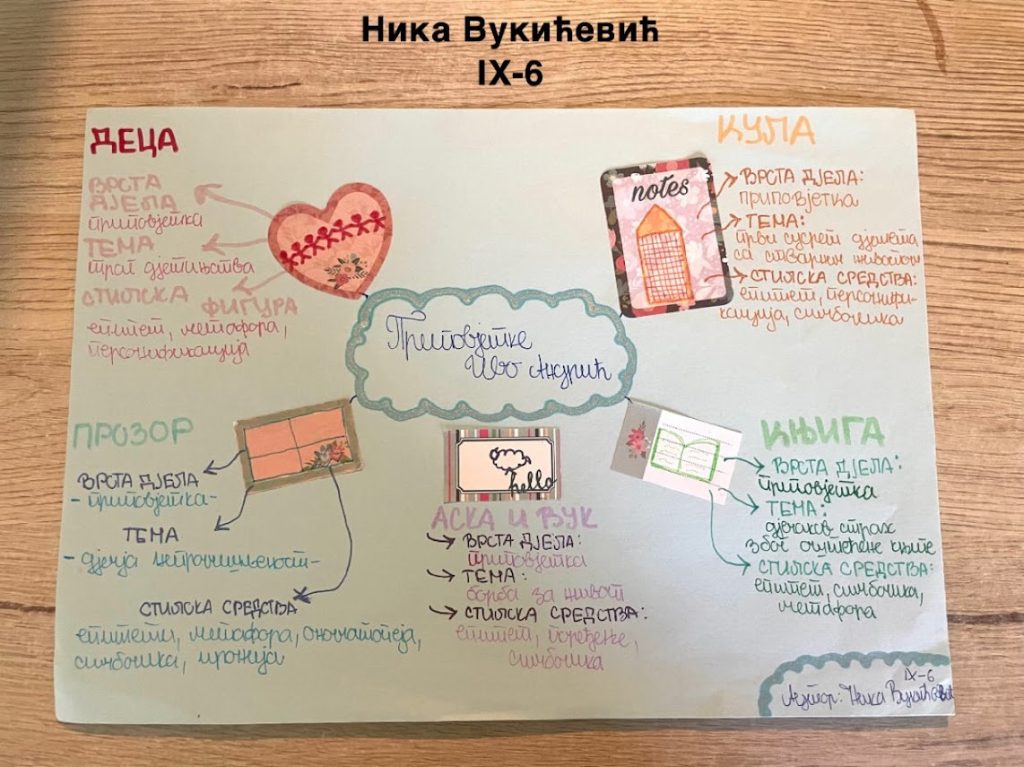 Ника Вукићевић
IX-6
ДЕЦА
ВРСТА
ДЈЕЛА
приповјетка
ТЕМА
траг дјетињства
СТИЛСКА ФИГУРА
епитет, метафора,
персонификација
КУЛА
notes
ВРСТА ДЈЕЛА:
приповјетка
ТЕМА:
први сусрет дјетета
са стварним животом
СТИЛСКА СРЕДСТВА:
епитет, персонифи-
кација, симболика
Приповјетке
Иво Андрић
ПРОЗОР
ВРСТА ДЈЕЛА
-приповјетка-
ТЕМА
-дјечја непромишљеност-
СТИЛСКА СРЕДСТВА
епитети, метафора, ономатопеја,
симболика, иронија
hello
АСКА И ВУК
ВРСТА ДЈЕЛА:
приповјетка
ТЕМА:
борба за живот
СТИЛСКА СРЕДСТВА:
епитет, поређење,
симболика
КЊИГА
ВРСТА ДЈЕЛА:
приповјетка
ТЕМА:
дјечаков страх
због оштећене књиге
СТИЛСКА СРЕДСТВА:
епитет, симболика,
метафора
IX-6
Аутор: Ника